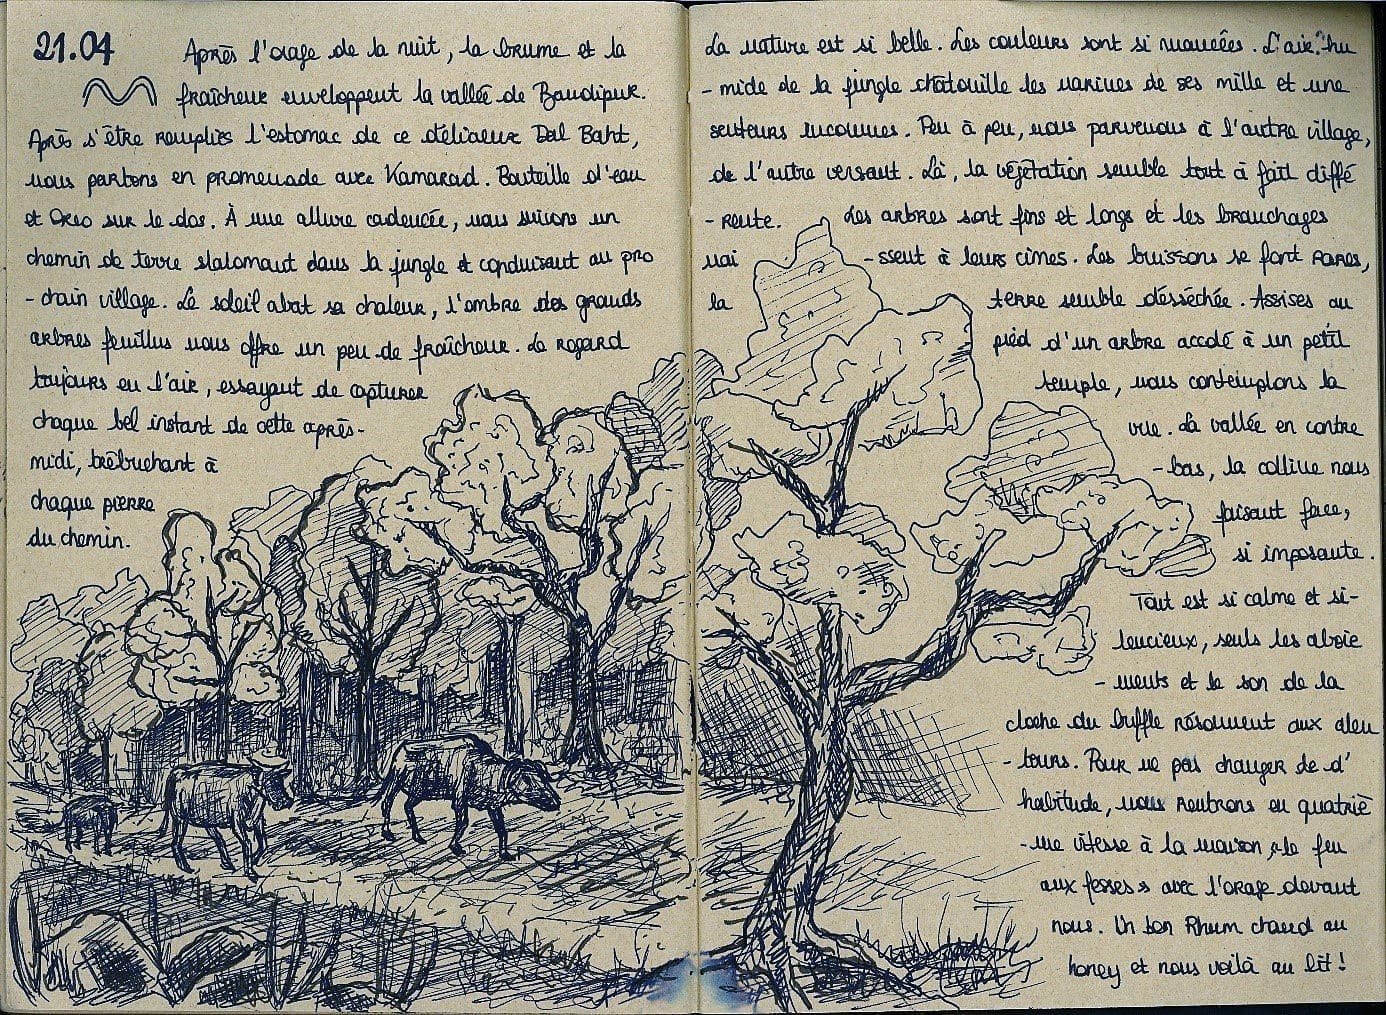 21.04
Après l'orage de la nuit, la brume et la
fraîcheur enveloppent la vallée de Bandipur.
Après s'être remplies l'estomac de ce délicieux Dal Baht,
nous partons en promenade avec Kamarad. Bouteille d'eau
et Oreo sur le dos. À une allure cadencée, nous suivons un
chemin de terre slalomant dans la jungle et conduisant au pro
- chain village. Le soleil abat sa chaleur, l'ombre des grands
arbres feuillus nous offre un peu de fraîcheur. Le regard
toujours en l'air, essayant de capturer
chaque bel instant de cette après-
midi, trébuchant à
chaque pierre
du chemin.
La nature est si belle. Les couleurs sont si nuancées. L'air hu
- mide de la jungle chatouille les narines de ses mille et une
senteurs inconnues. Peu à peu, nous parvenons à l'autre village,
de l'autre versant. Là, la végétation semble tout à fait diffé
- rente. Les arbres sont fins et longs et les branchages
nai - ssent à leurs cimes. Les buissons se font rares,
la terre semble désséchée. Assises au
pied d'un arbre accolé à un petit
temple, nous contemplons la
vue. La vallée en contre
- bas, la colline nous
faisant face,
si imposante.
Tout est si calme et si-
lencieux, seuls les aboie
- ments et le son de la
cloche du buffle résonnent aux alen
- tours. Pour ne pas changer de d'
habitude, nous rentrons en quatriè
- me vitesse à la maison, « le feu
aux fesses » avec l'orage devant
nous. Un bon Rhum chaud au
honey et nous voilà au lit !